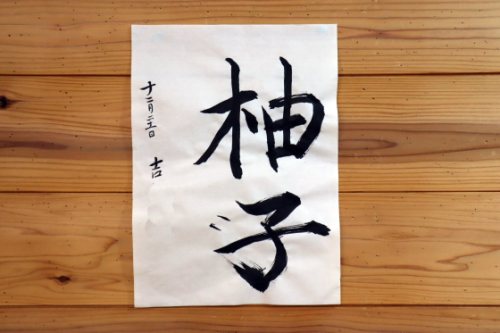 柚子
十二月二十一日 吉